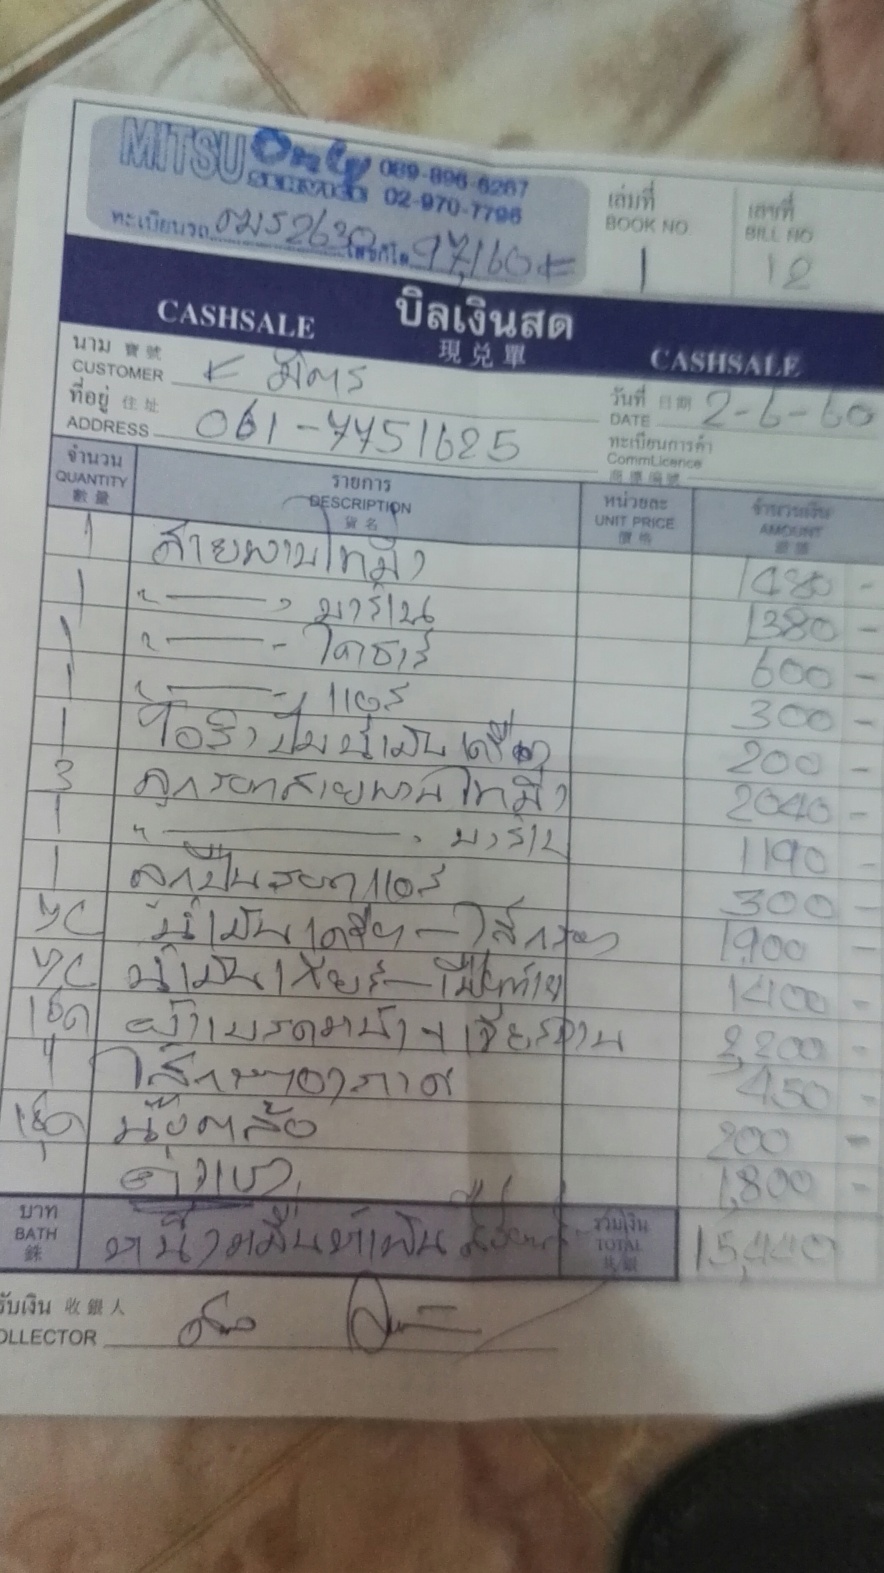 MITSU Only 089-896-6267
SERVICE 02-970-7796
ทะเบียนรถ ฌมร2630 เลขกิโล 97,160
เล่มที่ เลขที่
BOOK NO BILL NO
1 12
CASHSALE บิลเงินสด CASHSALE
現兑單
นาม 寶號
CUSTOMER K มิตร
วันที่ 日期
DATE 2-6-60
ที่อยู่ 住址
ADDRESS 061-7751625
ทะเบียนการค้า
CommLicence
จำนวน รายการ หน่วยละ จำนวนเงิน
QUANTITY DESCRIPTION UNIT PRICE AMOUNT
數量 貨名 價格
1 สายพานไทม์มิ่ง 1480 -
1 " — " บาร์เลน 1380 -
1 " — " ไดชาร์ 600 -
1 " — " แอร์ 300 -
1 ปั๊มน้ำมันเครื่อง 200 -
3 ลูกรอกสายพานไทม์มิ่ง 2040 -
1 " — " 1190 -
1 ลูกปืนรอกแอร์ 300 -
น้ำมันเครื่อง - ไส้กรอง 1,900 -
น้ำมันเกียร์ - เฟืองท้าย 1400 -
1ชุด ผ้าเบรคหน้า + เจียรจาน 2,200 -
1 ไส้กรองอากาศ 450 -
1ชุด 200 -
ค่าแรง 1,800 -
บาท รวมเงิน
BATH TOTAL 15,440
銖
รับเงิน 收銀人
COLLECTOR